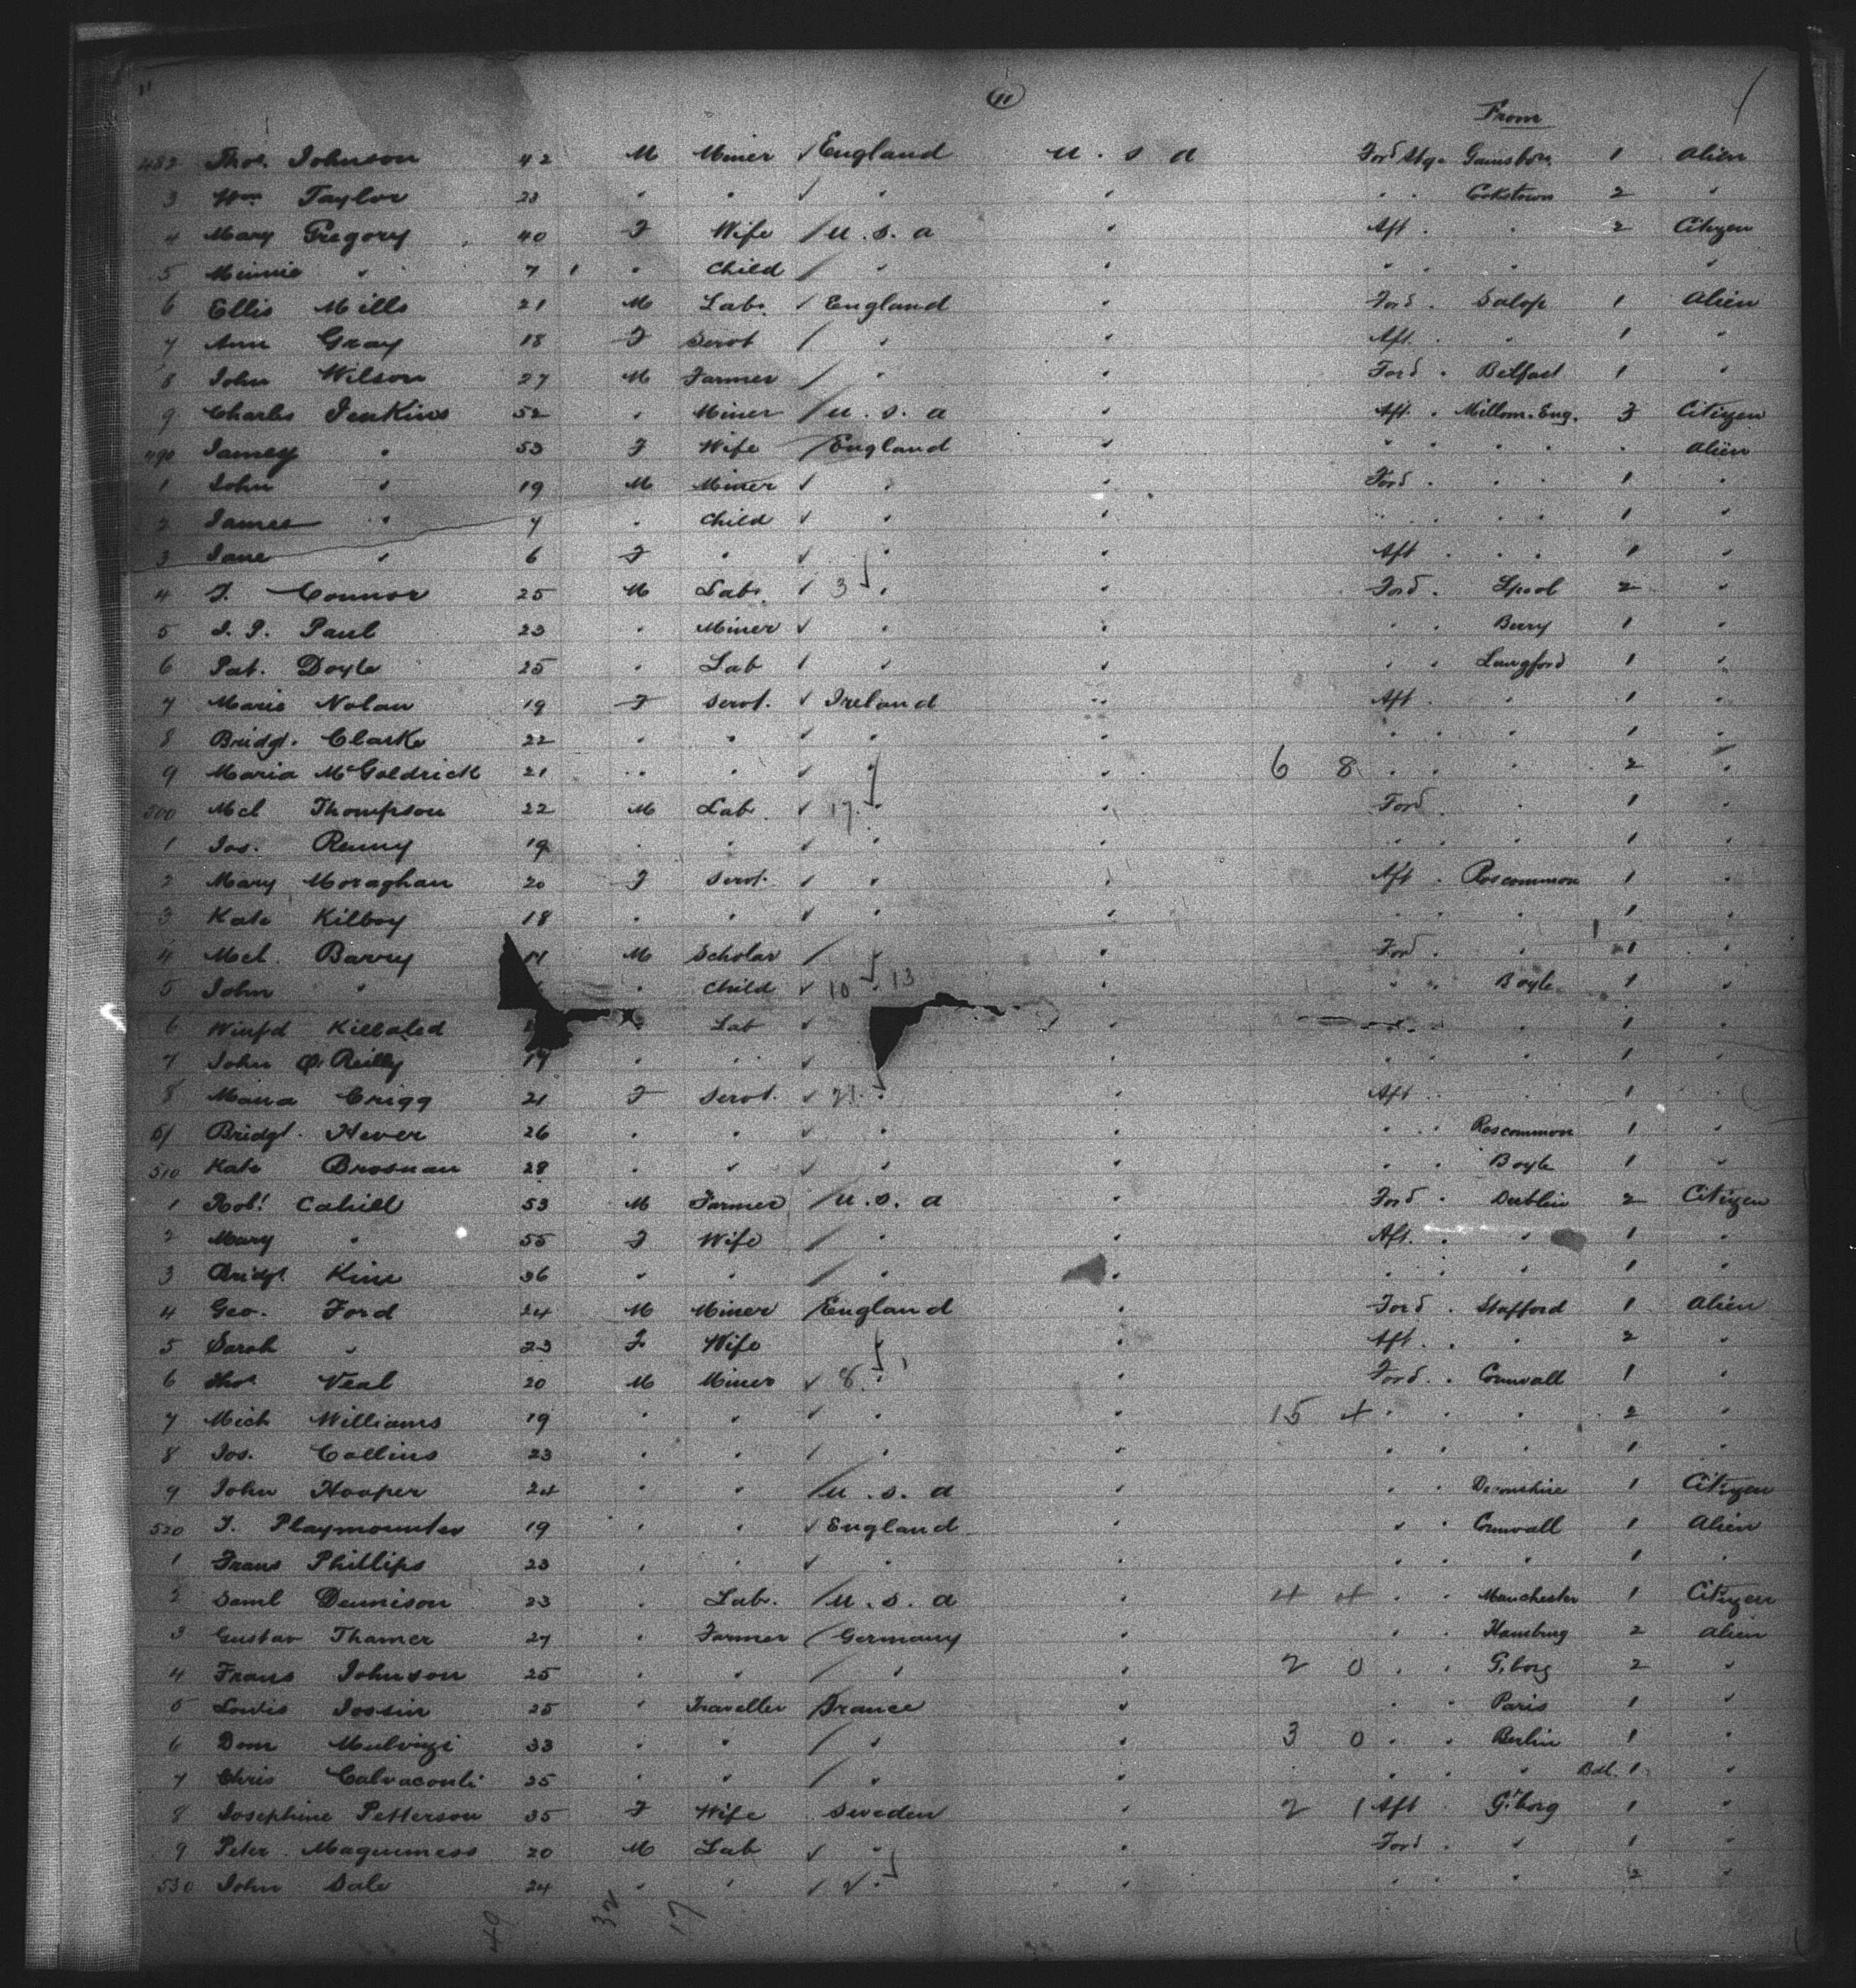 11
From
482 Thos. Johnson 42 M Miner England U.S.a Ford Stge Gainsbro 1 Alien
3 Wm Taylor 23 " " " " " " Cookstown 2 "
4 Mary Gregory 40 F Wife U.S.a " Aft " " 2 Citizen
5 Minnie " 7 " Child " " " " " "
6 Ellis Mills 21 M Lab. England " Ford " Salop 1 Alien
7 Ann Gray 18 F Servt " " Aft. " " 1 "
8 John Wilson 27 M Farmer " " Ford " Belfast 1 "
9 Charles Jenkins 52 " Miner U.S.a " Aft. " Millom. Eng. 3 Citizen
490 " 53 F Wife England " " " " " Alien
1 John " 19 M Miner " " Ford " " 1 "
2 James " 7 " Child " " " " " 1 "
3 Jane " 6 F " " " Aft " " 1 "
4 J. Connor 25 M Lab. 3 " " Ford " Lpool 2 "
5 J. P. Paul 23 " Miner " " " " 1 "
6 Pat. Doyle 25 " Lab " " " " Longford 1 "
7 Marie Nolan 19 F Servt. Ireland " Aft " " 1 "
8 Bridgt. Clarke 22 " " " " " " " 1 "
9 Maria McGoldrick 21 " " " " 6 8 " " " 2 "
500 Mcl Thompson 22 M Lab 17 " " Ford " 1 "
1 Jos. Renny 19 " " " " " " " 1 "
2 Mary Moraghan 20 F Servt. " " Aft " Roscommon 1 "
3 Kate Kilboy 18 " " " " " " " 1 "
4 Mcl. Barry 11 M Scholar " " Ford " 1 "
5 John " " Child 10 13 " " " Boyle 1 "
6 Winfd " Lab " " 1 "
7 John O'Reilly " " " " " " 1 "
8 Maria Crigg 21 F Servt. 21 " " Aft " " 1 "
9 Bridgt. Hever 26 " " " " " " Roscommon 1 "
510 Kate Brosnan 28 " " " " " " Boyle 1 "
1 Robt. Cahill 53 M Farmer U.S.a " Ford " Dublin 2 Citizen
2 Mary " 55 F Wife " " Aft. " " 1 "
3 Bridgt. Kine 36 " " " " " " " 1 "
4 Geo. Ford 24 M Miner England " Ford " Stafford 1 Alien
5 Sarah " 23 F Wife " " Aft. " " 2 "
6 Thos Veal 20 M Miner 8 " " Ford " Cornwall 1 "
7 Mich Williams 19 " " " " 15 4 " " " 2 "
8 Jos. Collins 23 " " " " " " " 1 "
9 John Hooper 24 " " U.S.a " " " Devonshire 1 Citizen
520 J. Playmounter 19 " " England " " " Cornwall 1 Alien
1 Frans Phillips 23 " " " " " " " 1 "
2 Saml Dennison 23 " Lab. U.S.a " 4 4 " " Manchester 1 Citizen
3 Gustav Thamer 27 " Farmer Germany " " " Hamburg 2 Alien
4 Frans Johnson 25 " " " " 2 0 " " G.borg 2 "
5 Louis Jossin 25 " Traveller France " " " Paris 1 "
6 Dom 33 " " " " 3 0 " " Berlin 1 "
7 Chris Calvaconti 25 " " " " " " " Bdl. 1 "
8 Josephine Petterson 35 F Wife Sweden " 2 1 Aft " G.borg 1 "
9 Peter Maguiness 20 M Lab " " Ford " " 1 "
530 John Sale 24 " " 2 " " " " " 2 "
49 32 17